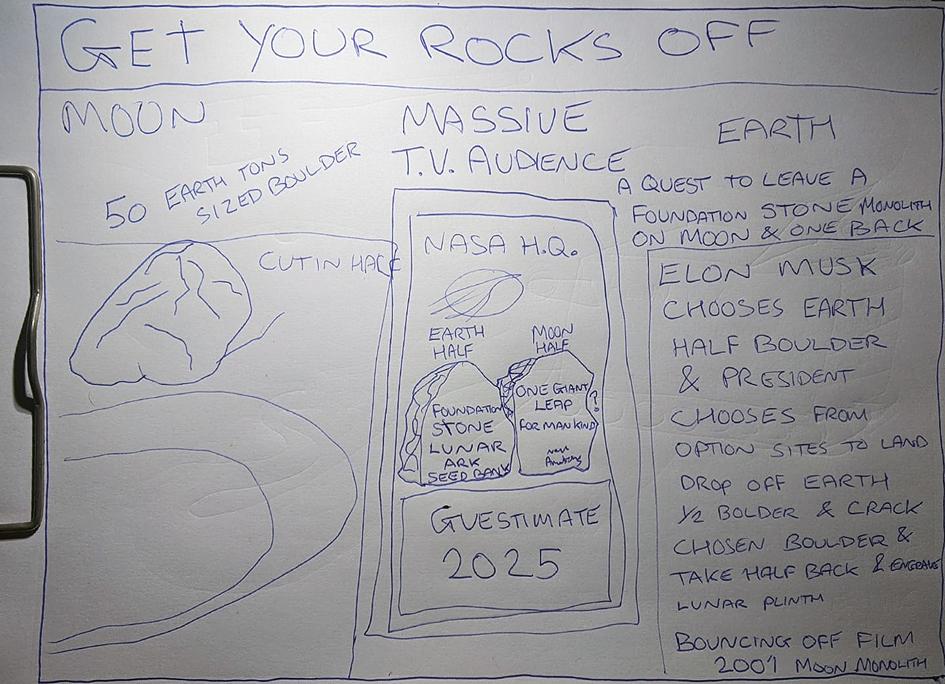 GET YOUR ROCKS OFF
MOON
50 EARTH TONS
SIZED BOULDER
CUT IN HALF
MASSIVE
T.V. AUDIENCE
NASA H.Q.
EARTH
HALF
MOON
HALF
FOUNDATION
STONE
LUNAR
ARK
SEED BANK
ONE GIANT
LEAP
FOR MANKIND
?
GUESTIMATE
2025
EARTH
A QUEST TO LEAVE A
FOUNDATION STONE MONOLITH
ON MOON & ONE BACK
ELON MUSK
CHOOSES EARTH
HALF BOULDER
& PRESIDENT
CHOOSES FROM
OPTION SITES TO LAND
DROP OFF EARTH
1/2 BOLDER & CRACK
CHOSEN BOULDER &
TAKE HALF BACK & ENGRAVE
LUNAR PLINTH
BOUNCING OFF FILM
2001 MOON MONOLITH